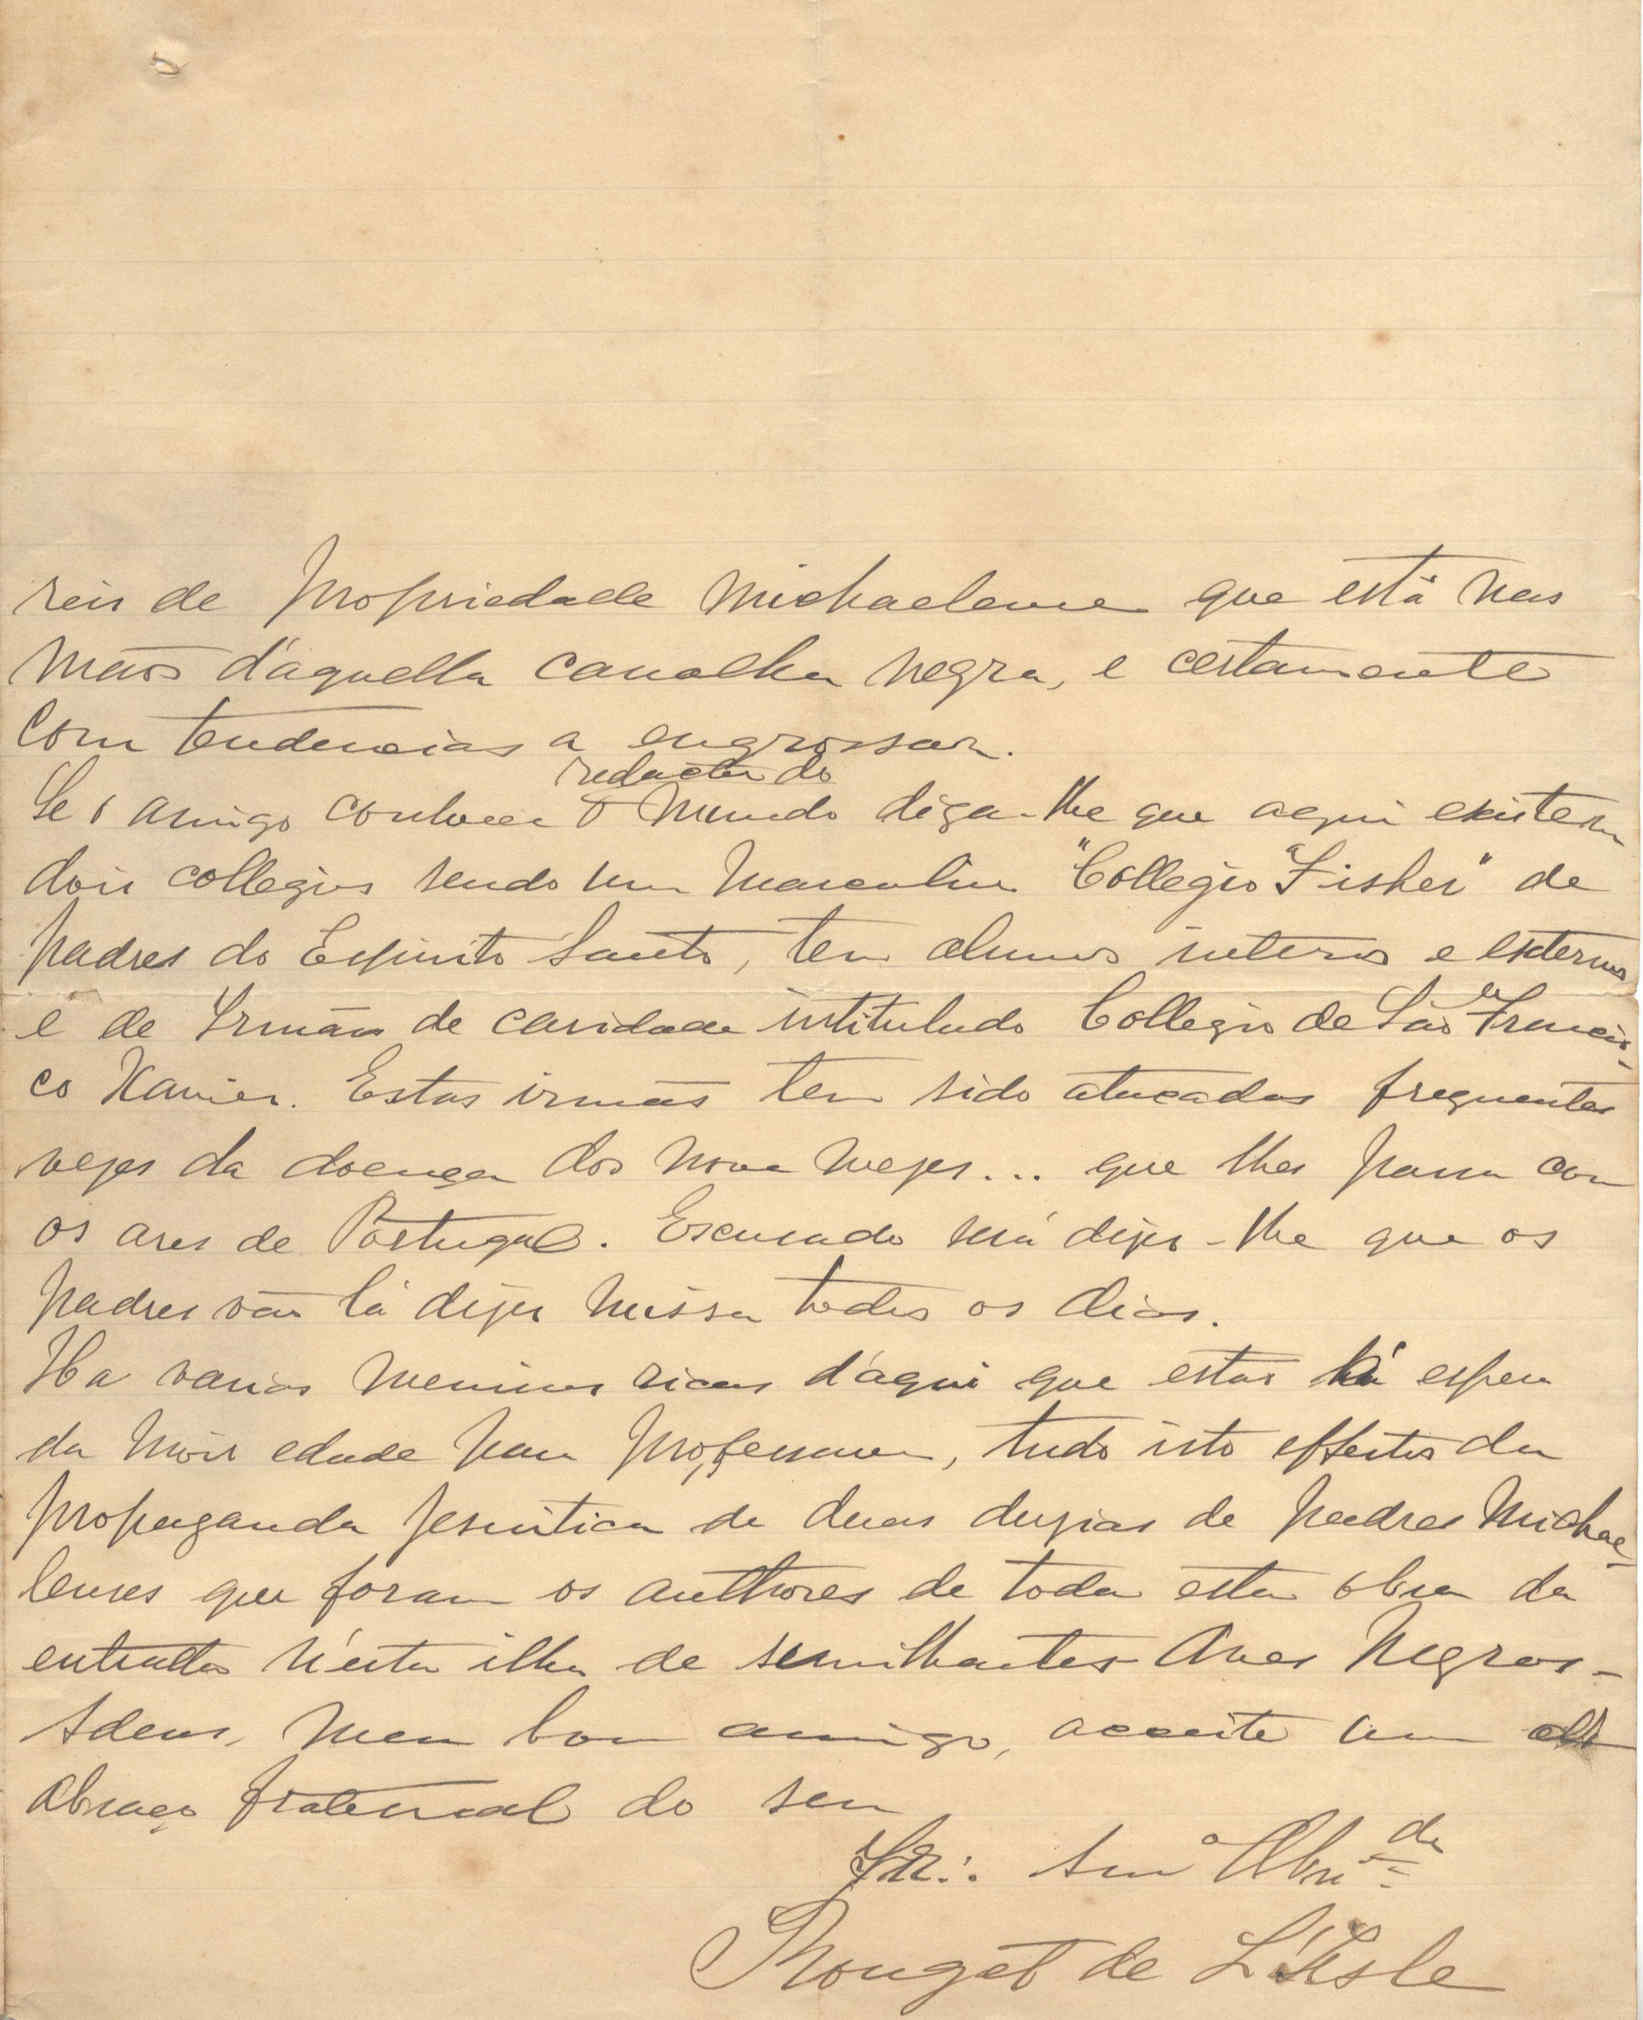 reis de propriedade michaelense que está nas
mãos d'aquella canalha negra, e certamente
com tendencias a engrossar.
redactor do
Se o amigo conhecer o Mundo diga-lhe que aqui existem
dois collegios sendo um masculino "Collegio Fisher" de
padres do Espirito Santo, tem alumnos internos e externos
e de Irmãs de caridade intitulado Collegio de São Francis-
co Xavier. Estas irmãs tem sido atacadas frequentes
vezes da doença dos nove mezes... que lhes passa com
os ares de Portugal. Escusado será dizer-lhe que os
padres vão lá dizer missa todos os dias.
Ha varias meninas ricas d'aqui que estão lá espera
da maior edade para professarem, tudo isto effeitos da
propaganda jesuitica de duas duzias de padres michae-
lenses que foram os authores de toda esta obra da
entrada n'esta ilha de semilhantes Aves Negras-
Adeus, meu bom amigo, acceite um
abraço fraternal do seu
Ir∴ Amº Obrdo
Rouget de L'Isle